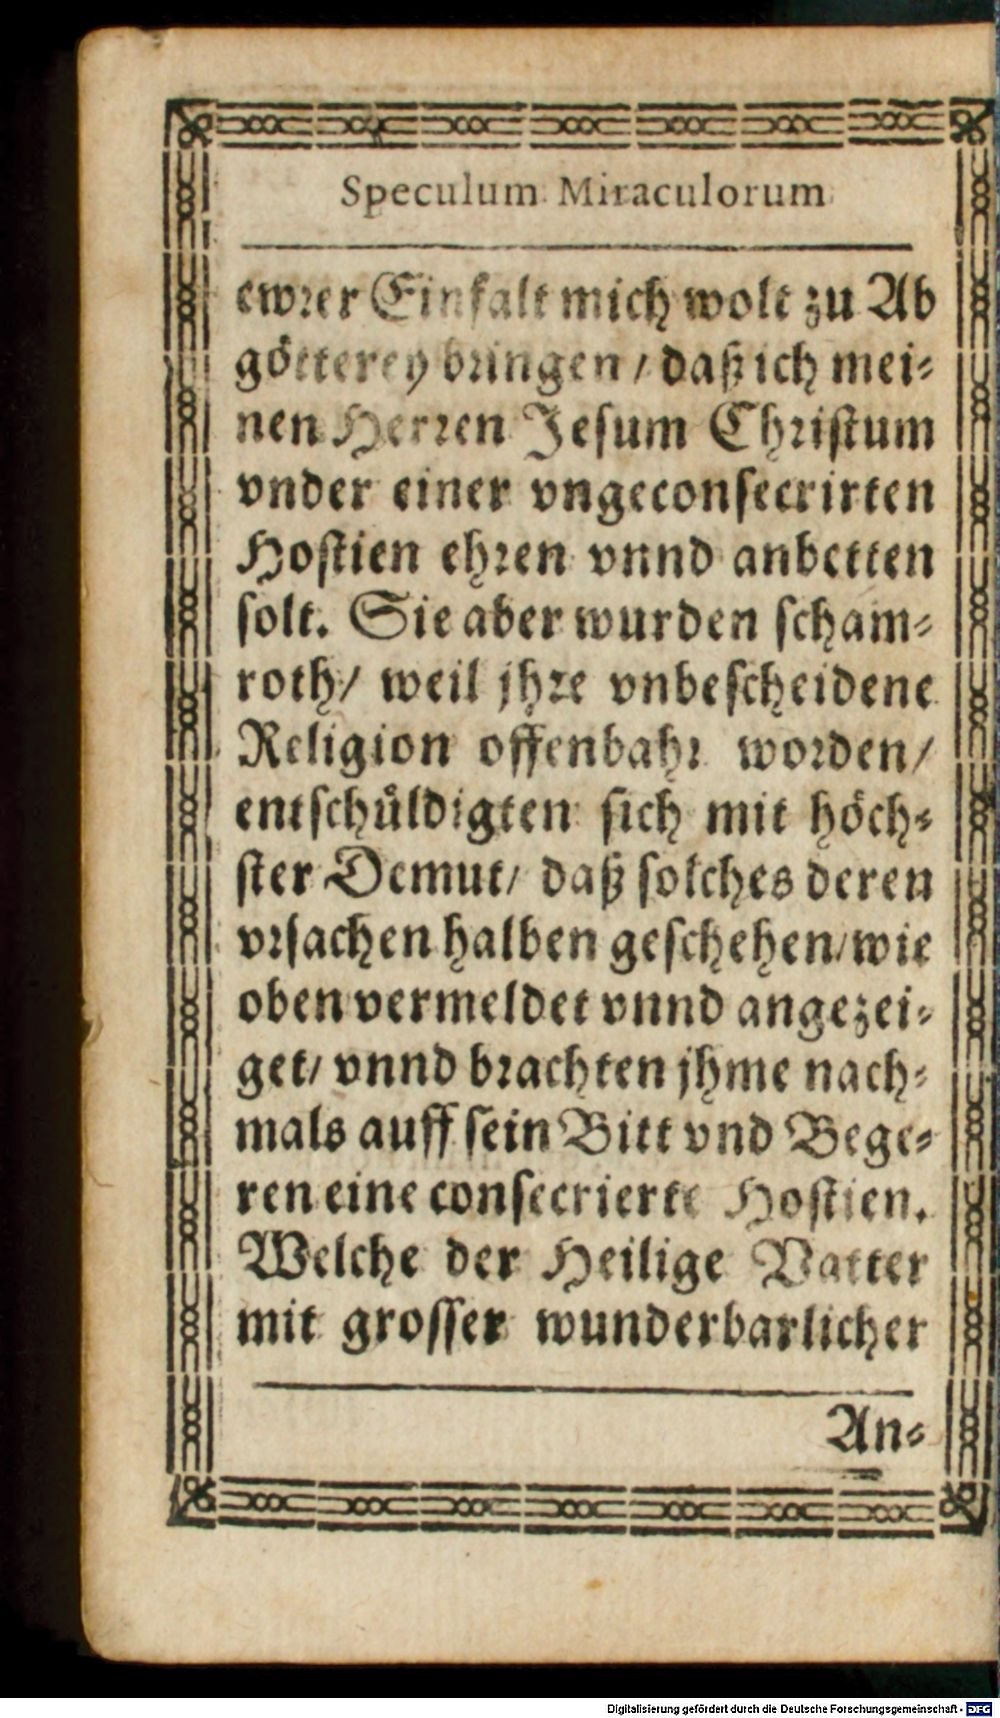 Speculum Miraculorum
ewrer Einfalt mich wolt zu Ab
götterey bringen / daß ich mei-
nen Herren Jesum Christum
vnder einer vngeconsecrirten
Hostien ehren vnnd anbetten
solt. Sie aber wurden scham-
roth / weil jhre vnbescheidene
Religion offenbahr worden /
entschuͤldigten sich mit hoͤch-
ster Demut / daß solches deren
vrsachen halben geschehen / wie
oben vermeldet vnnd angezei-
get / vnnd brachten jhme nach-
mals auff sein Bitt vnd Bege-
ren eine consecrierte Hostien.
Welche der Heilige Vatter
mit grosser wunderbarlicher
An-
Digitalisierung gefördert durch die Deutsche Forschungsgemeinschaft - DFG